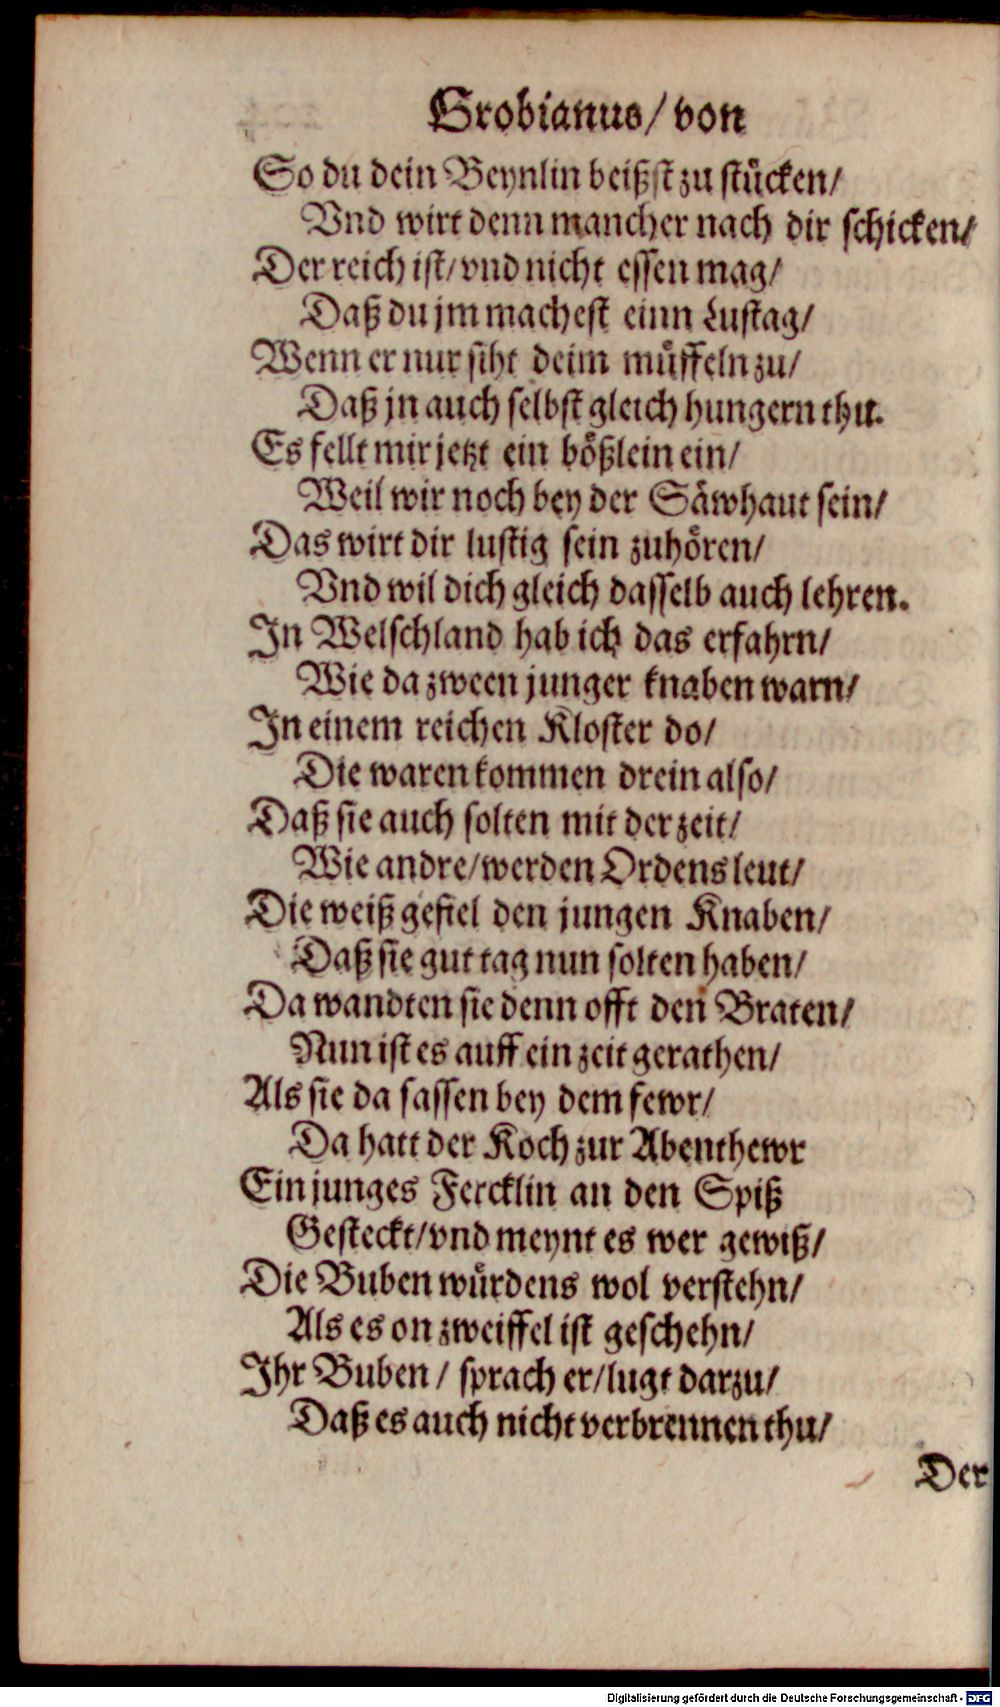 Grobianus/ von
So du dein Beynlin beißst zu stücken/
Vnd wirt denn mancher nach dir schicken/
Der reich ist/ vnd nicht essen mag/
Daß du jm machest einn Lustag/
Wenn er nur siht deim müffeln zu/
Daß jn auch selbst gleich hungern thu.
Es fellt mir jetzt ein bößlein ein/
Weil wir noch bey der Säwhaut sein/
Das wirt dir lustig sein zuhören/
Vnd wil dich gleich dasselb auch lehren.
In Welschland hab ich das erfahrn/
Wie da zween junger knaben warn/
In einem reichen Kloster do/
Die waren kommen drein also/
Daß sie auch solten mit der zeit/
Wie andre/ werden Ordens leut/
Die weiß gefiel den jungen Knaben/
Daß sie gut tag nun solten haben/
Da wandten sie denn offt den Braten/
Nun ist es auff ein zeit gerathen/
Als sie da sassen bey dem fewr/
Da hatt der Koch zur Abenthewr
Ein junges Fercklin an den Spiß
Gesteckt/ vnd meynt es wer gewiß/
Die Buben würdens wol verstehn/
Als es on zweiffel ist geschehn/
Ihr Buben/ sprach er/ lugt darzu/
Daß es auch nicht verbrennen thu/
Der
Digitalisierung gefördert durch die Deutsche Forschungsgemeinschaft - DFG